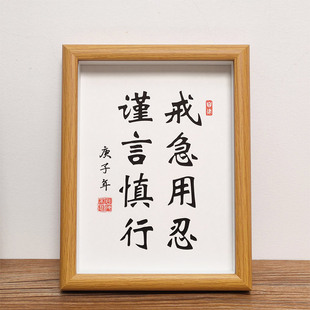 戒急用忍
谨言慎行
庚子年